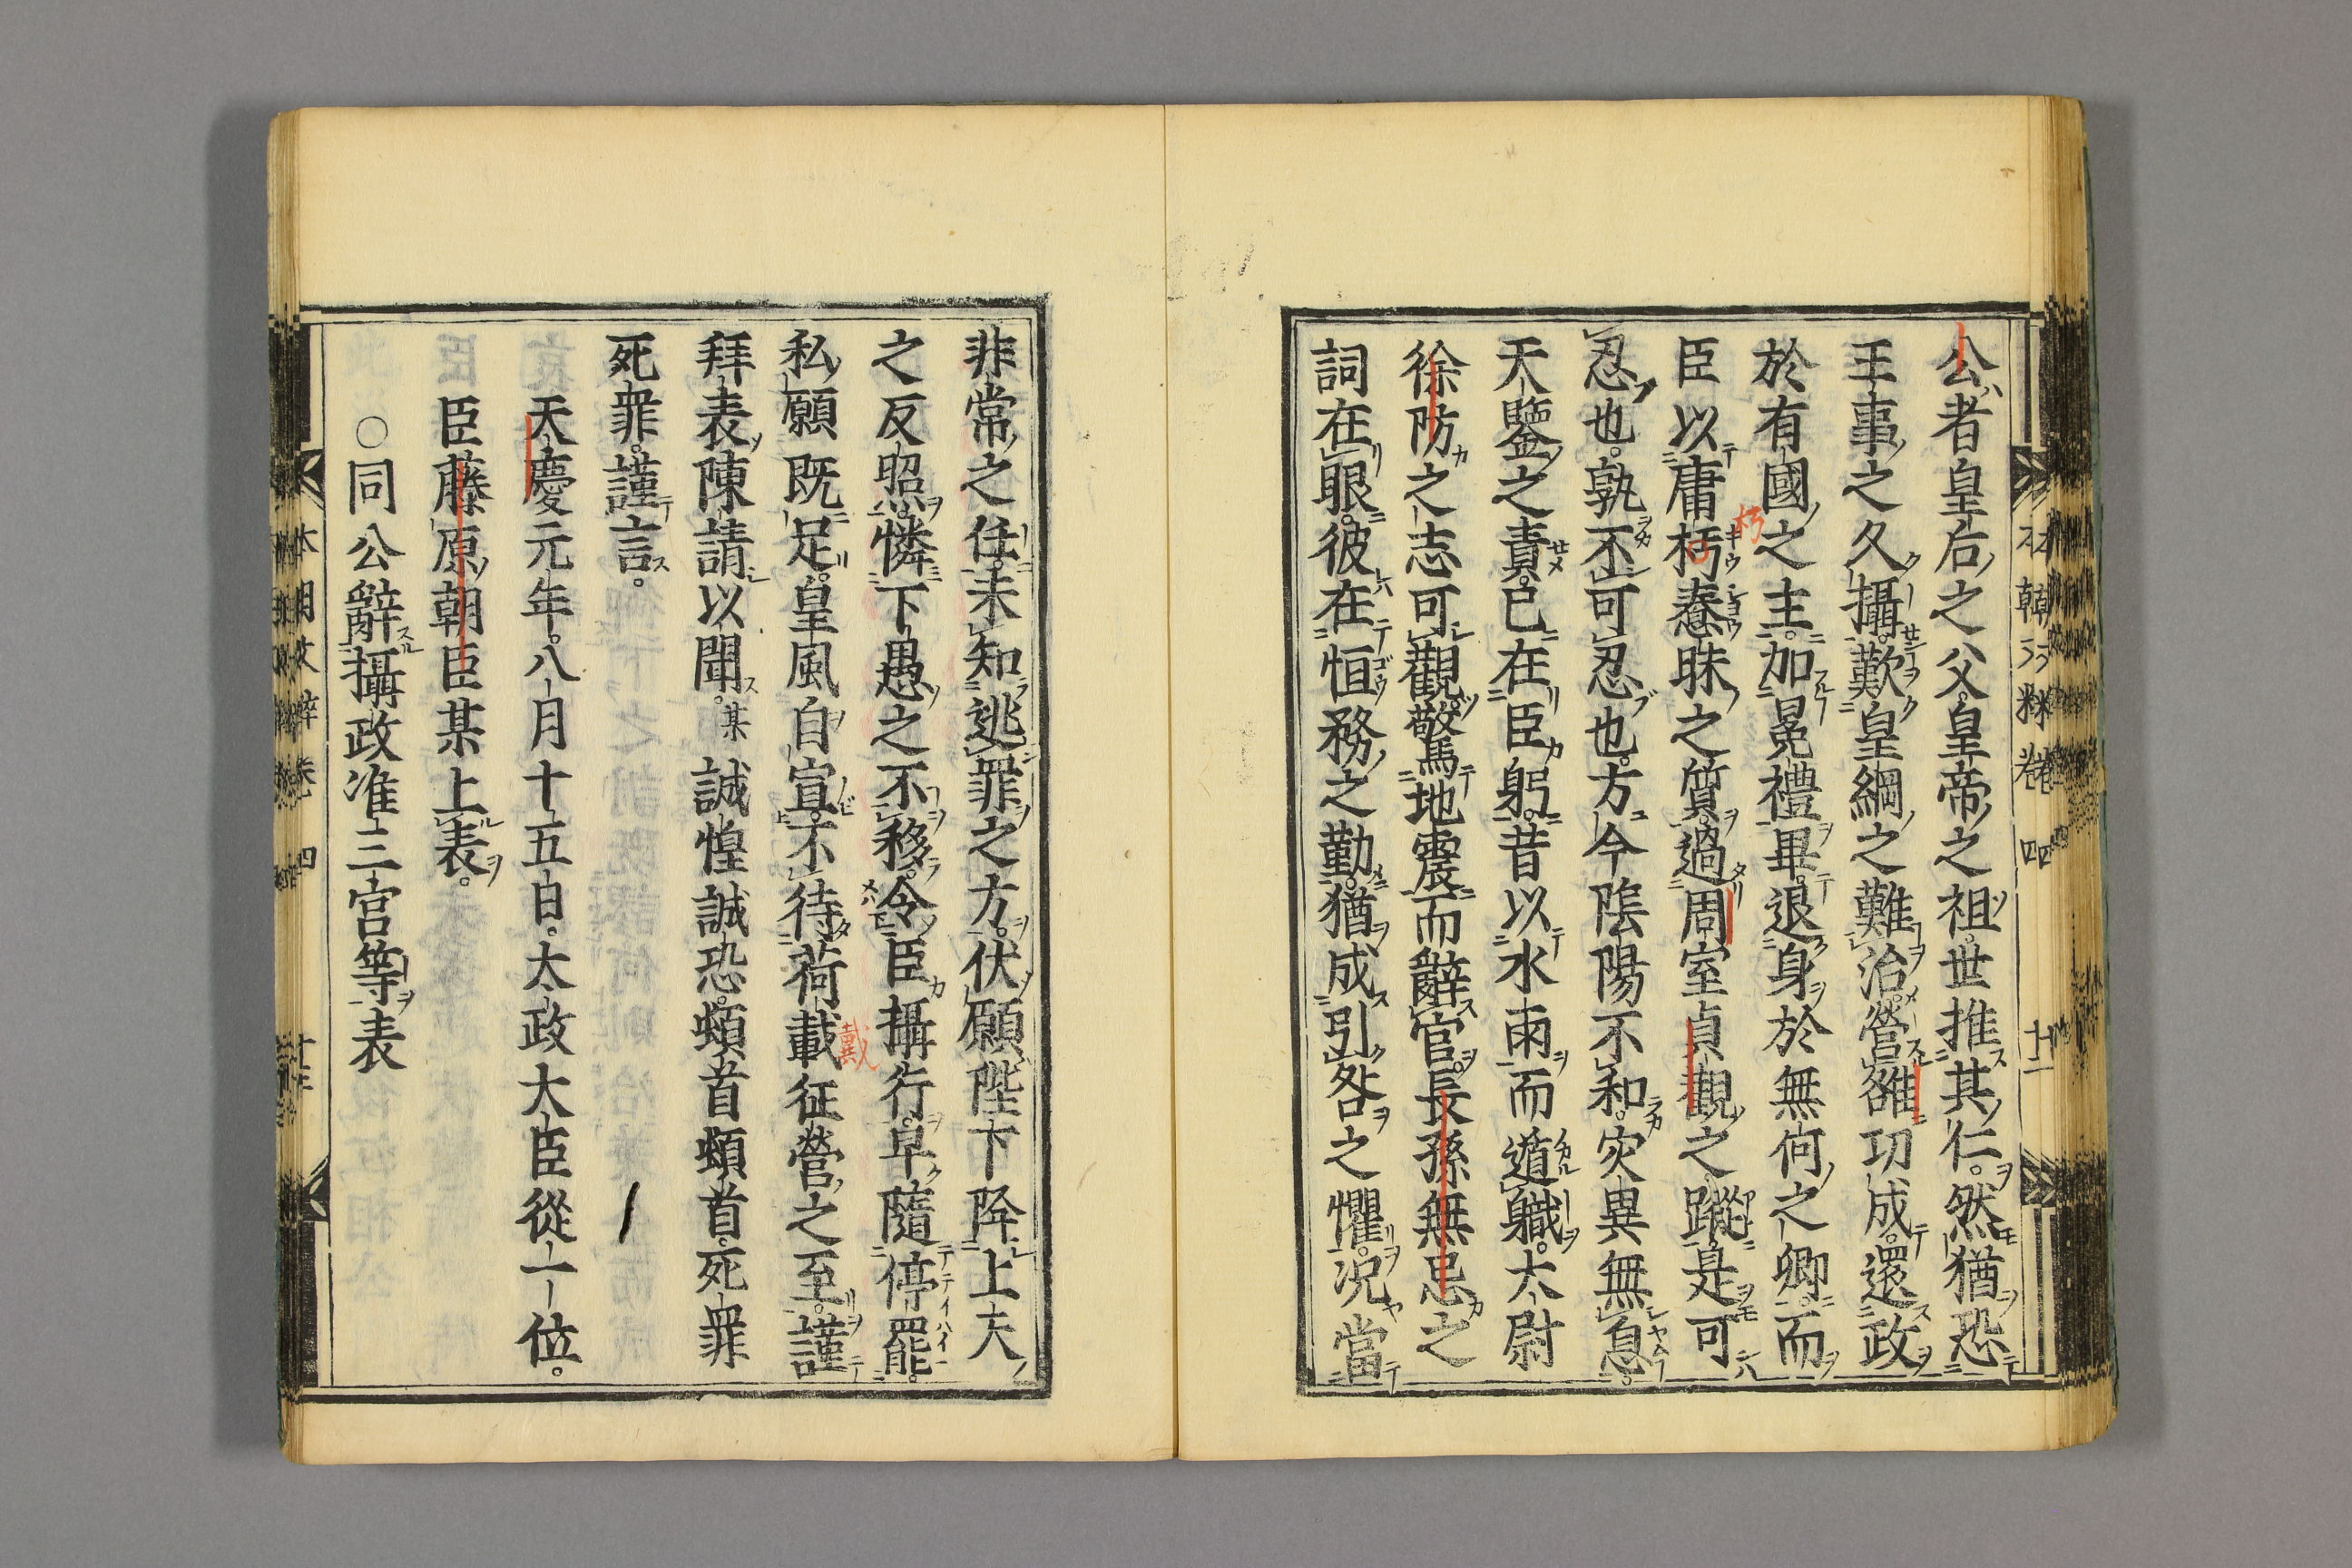 公者皇后之父。皇帝之祖。世推其仁。然猶恐
王事之久攝。歎皇綱之難治。營雒功成。還政
於有國之主。加冕禮畢。退身於無何之卿。而
臣以庸朽憃昧之質。過周室貞觀之蹤。是可
忍也。孰不可忍也。方今陰陽不和。灾異無息。
天鑒之責。已在臣躬。昔以水雨而遁職。太尉
徐防之志可觀。驚地震而辭官。長孫無忌之
詞在眼。彼在恒務之勤。猶成引咎之懼。況當
非常之任。未知逃罪之方。伏願陛下降上天
之反照。憐下愚之不移。令臣攝行。早隨停罷。
私願既足。皇風自宣。不待荷載征營之至。謹
拜表陳請以聞。某誠惶誠恐。頓首頓首。死罪
死罪。謹言。
天慶元年。八月十五日。太政大臣從一位。
臣藤原朝臣某上表。
○同公辭攝政准三宮等表